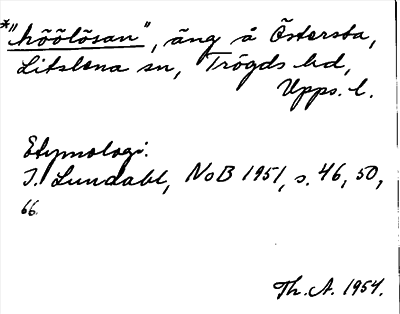 *"höölösan", äng å Östersta,
Litslena sn, Trögds hd,
Upps. l.
Etymologi:
I. Lundahl, NoB 1951, s. 46, 50,
66.
Th. A. 1954.